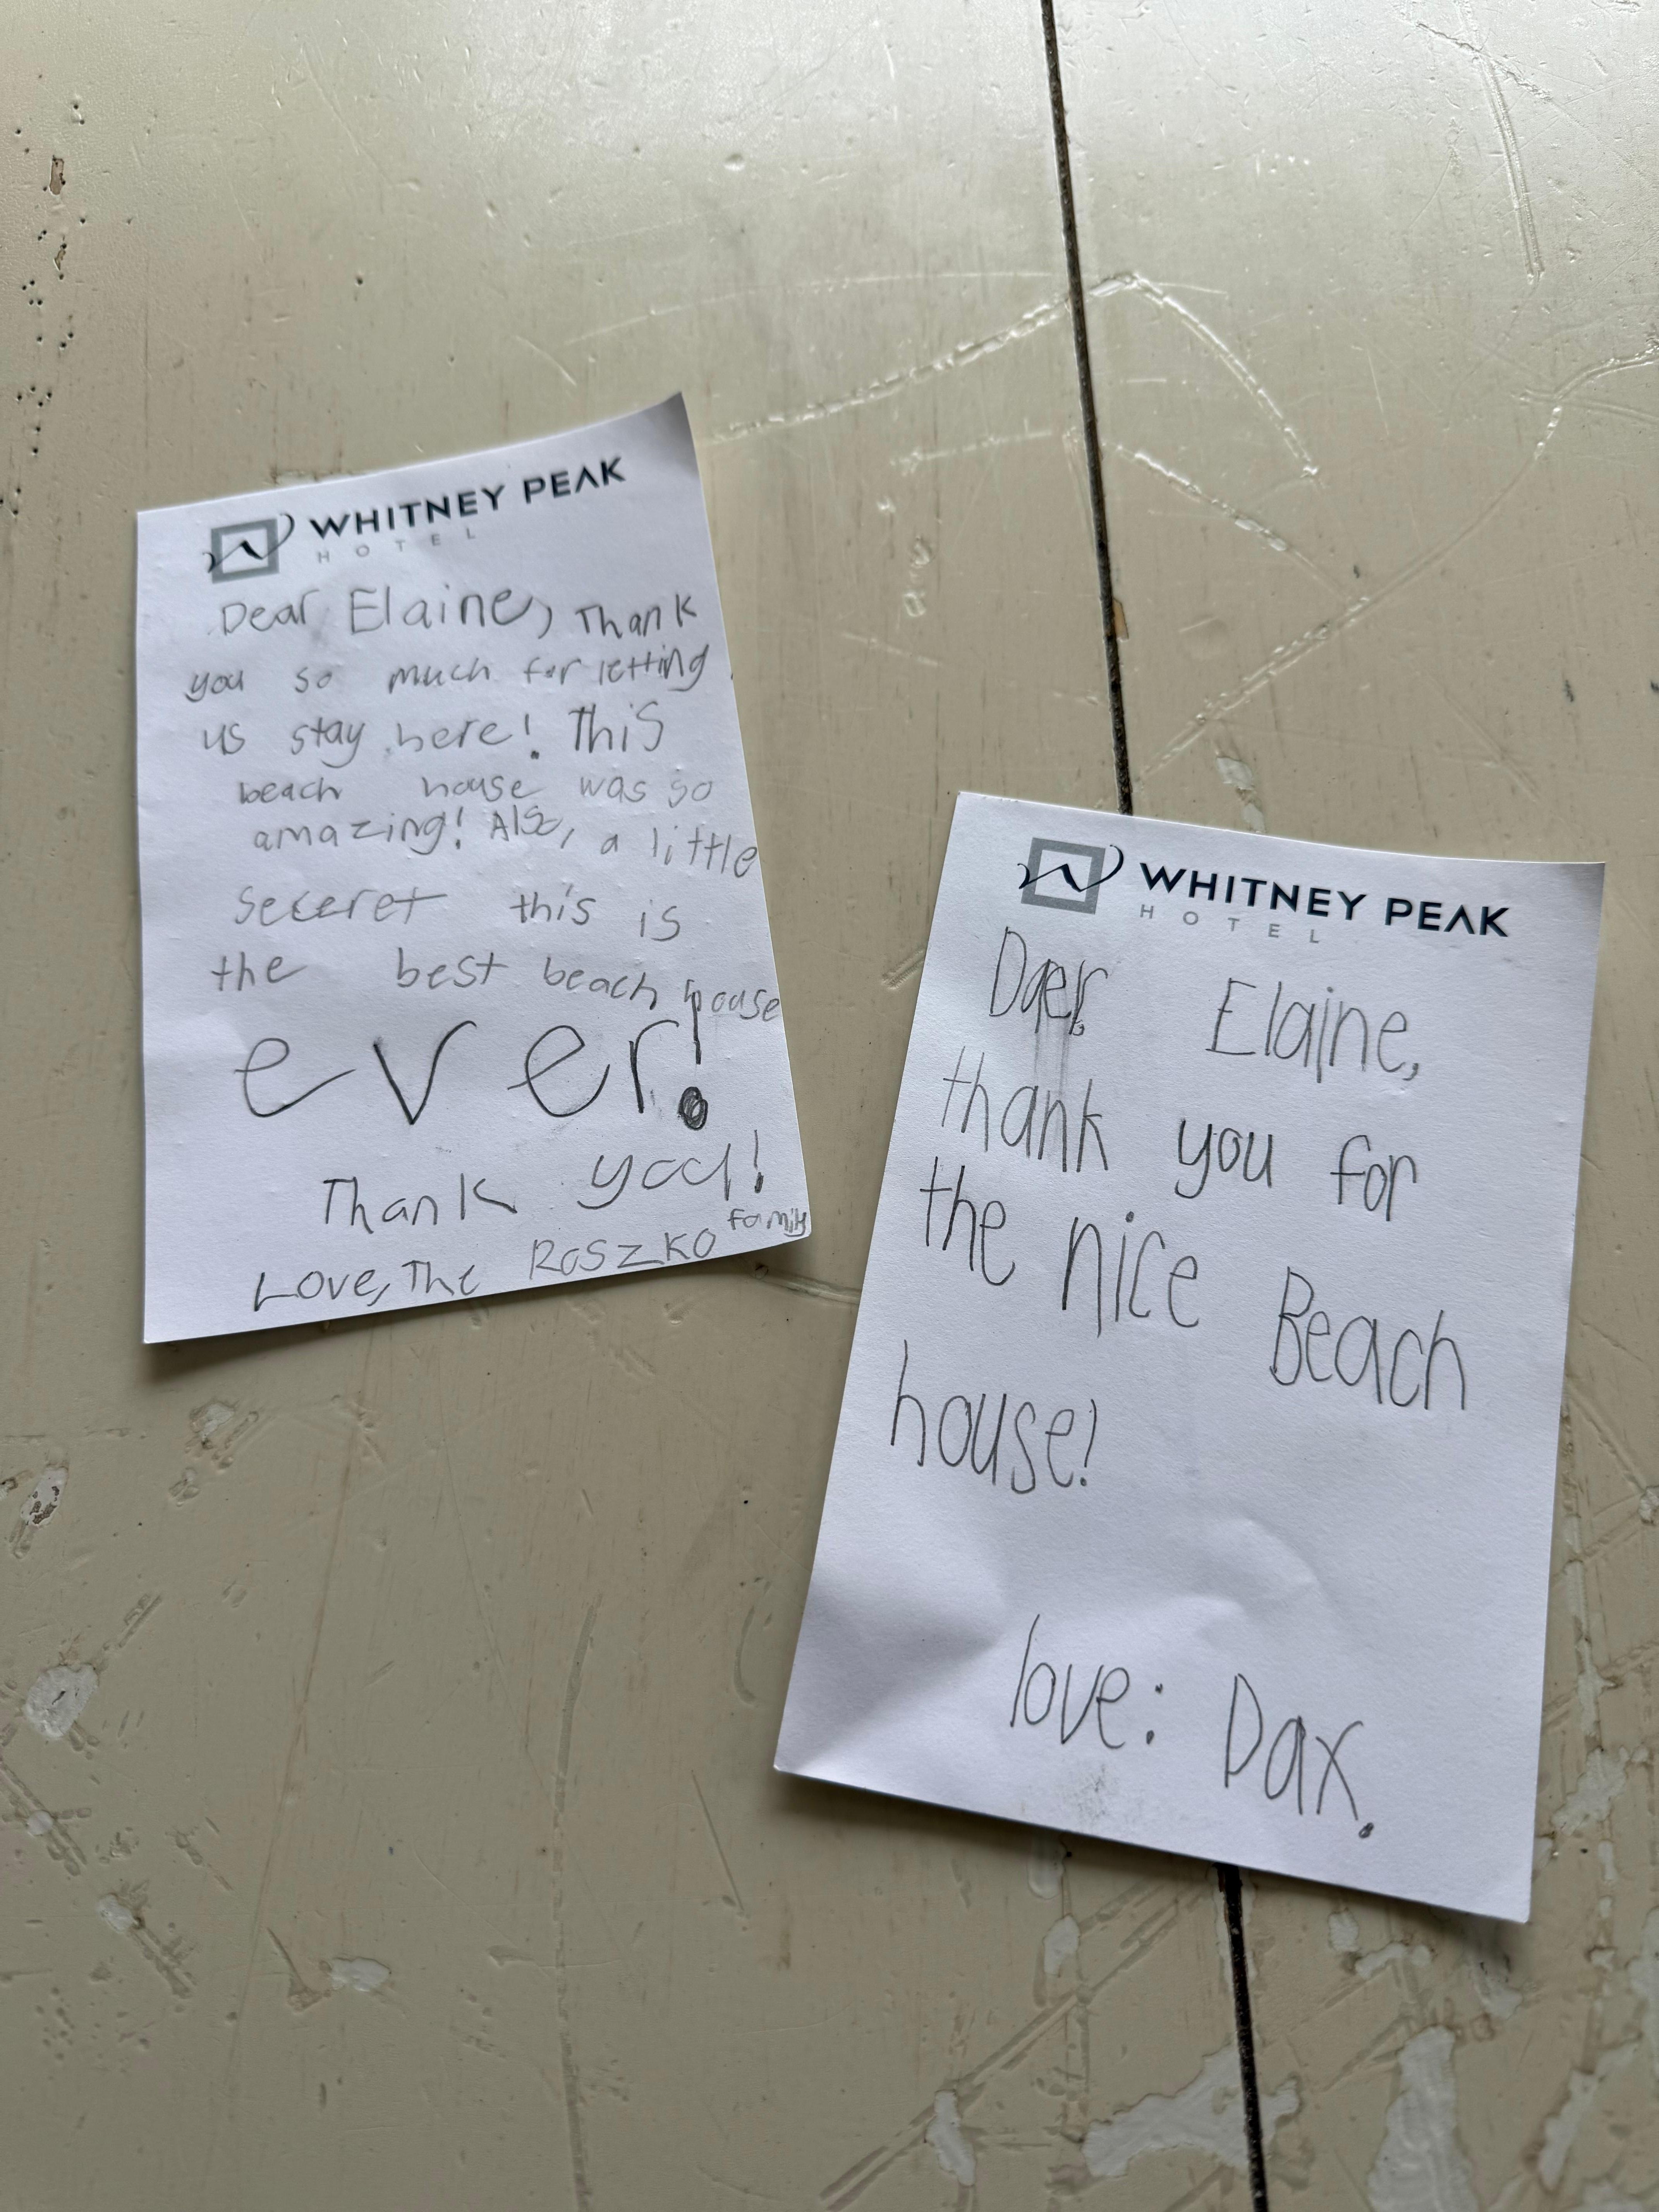 WHITNEY PEAK
HOTEL
Dear Elaine, Thank
you so much for letting
us stay here! This
beach house was so
amazing! Also, a little
seceret this is
the best beach house
ever!
Thank you!
Love, The Roszko family
WHITNEY PEAK
HOTEL
Daer Elaine,
thank you for
the nice Beach
house!
love: Dax.